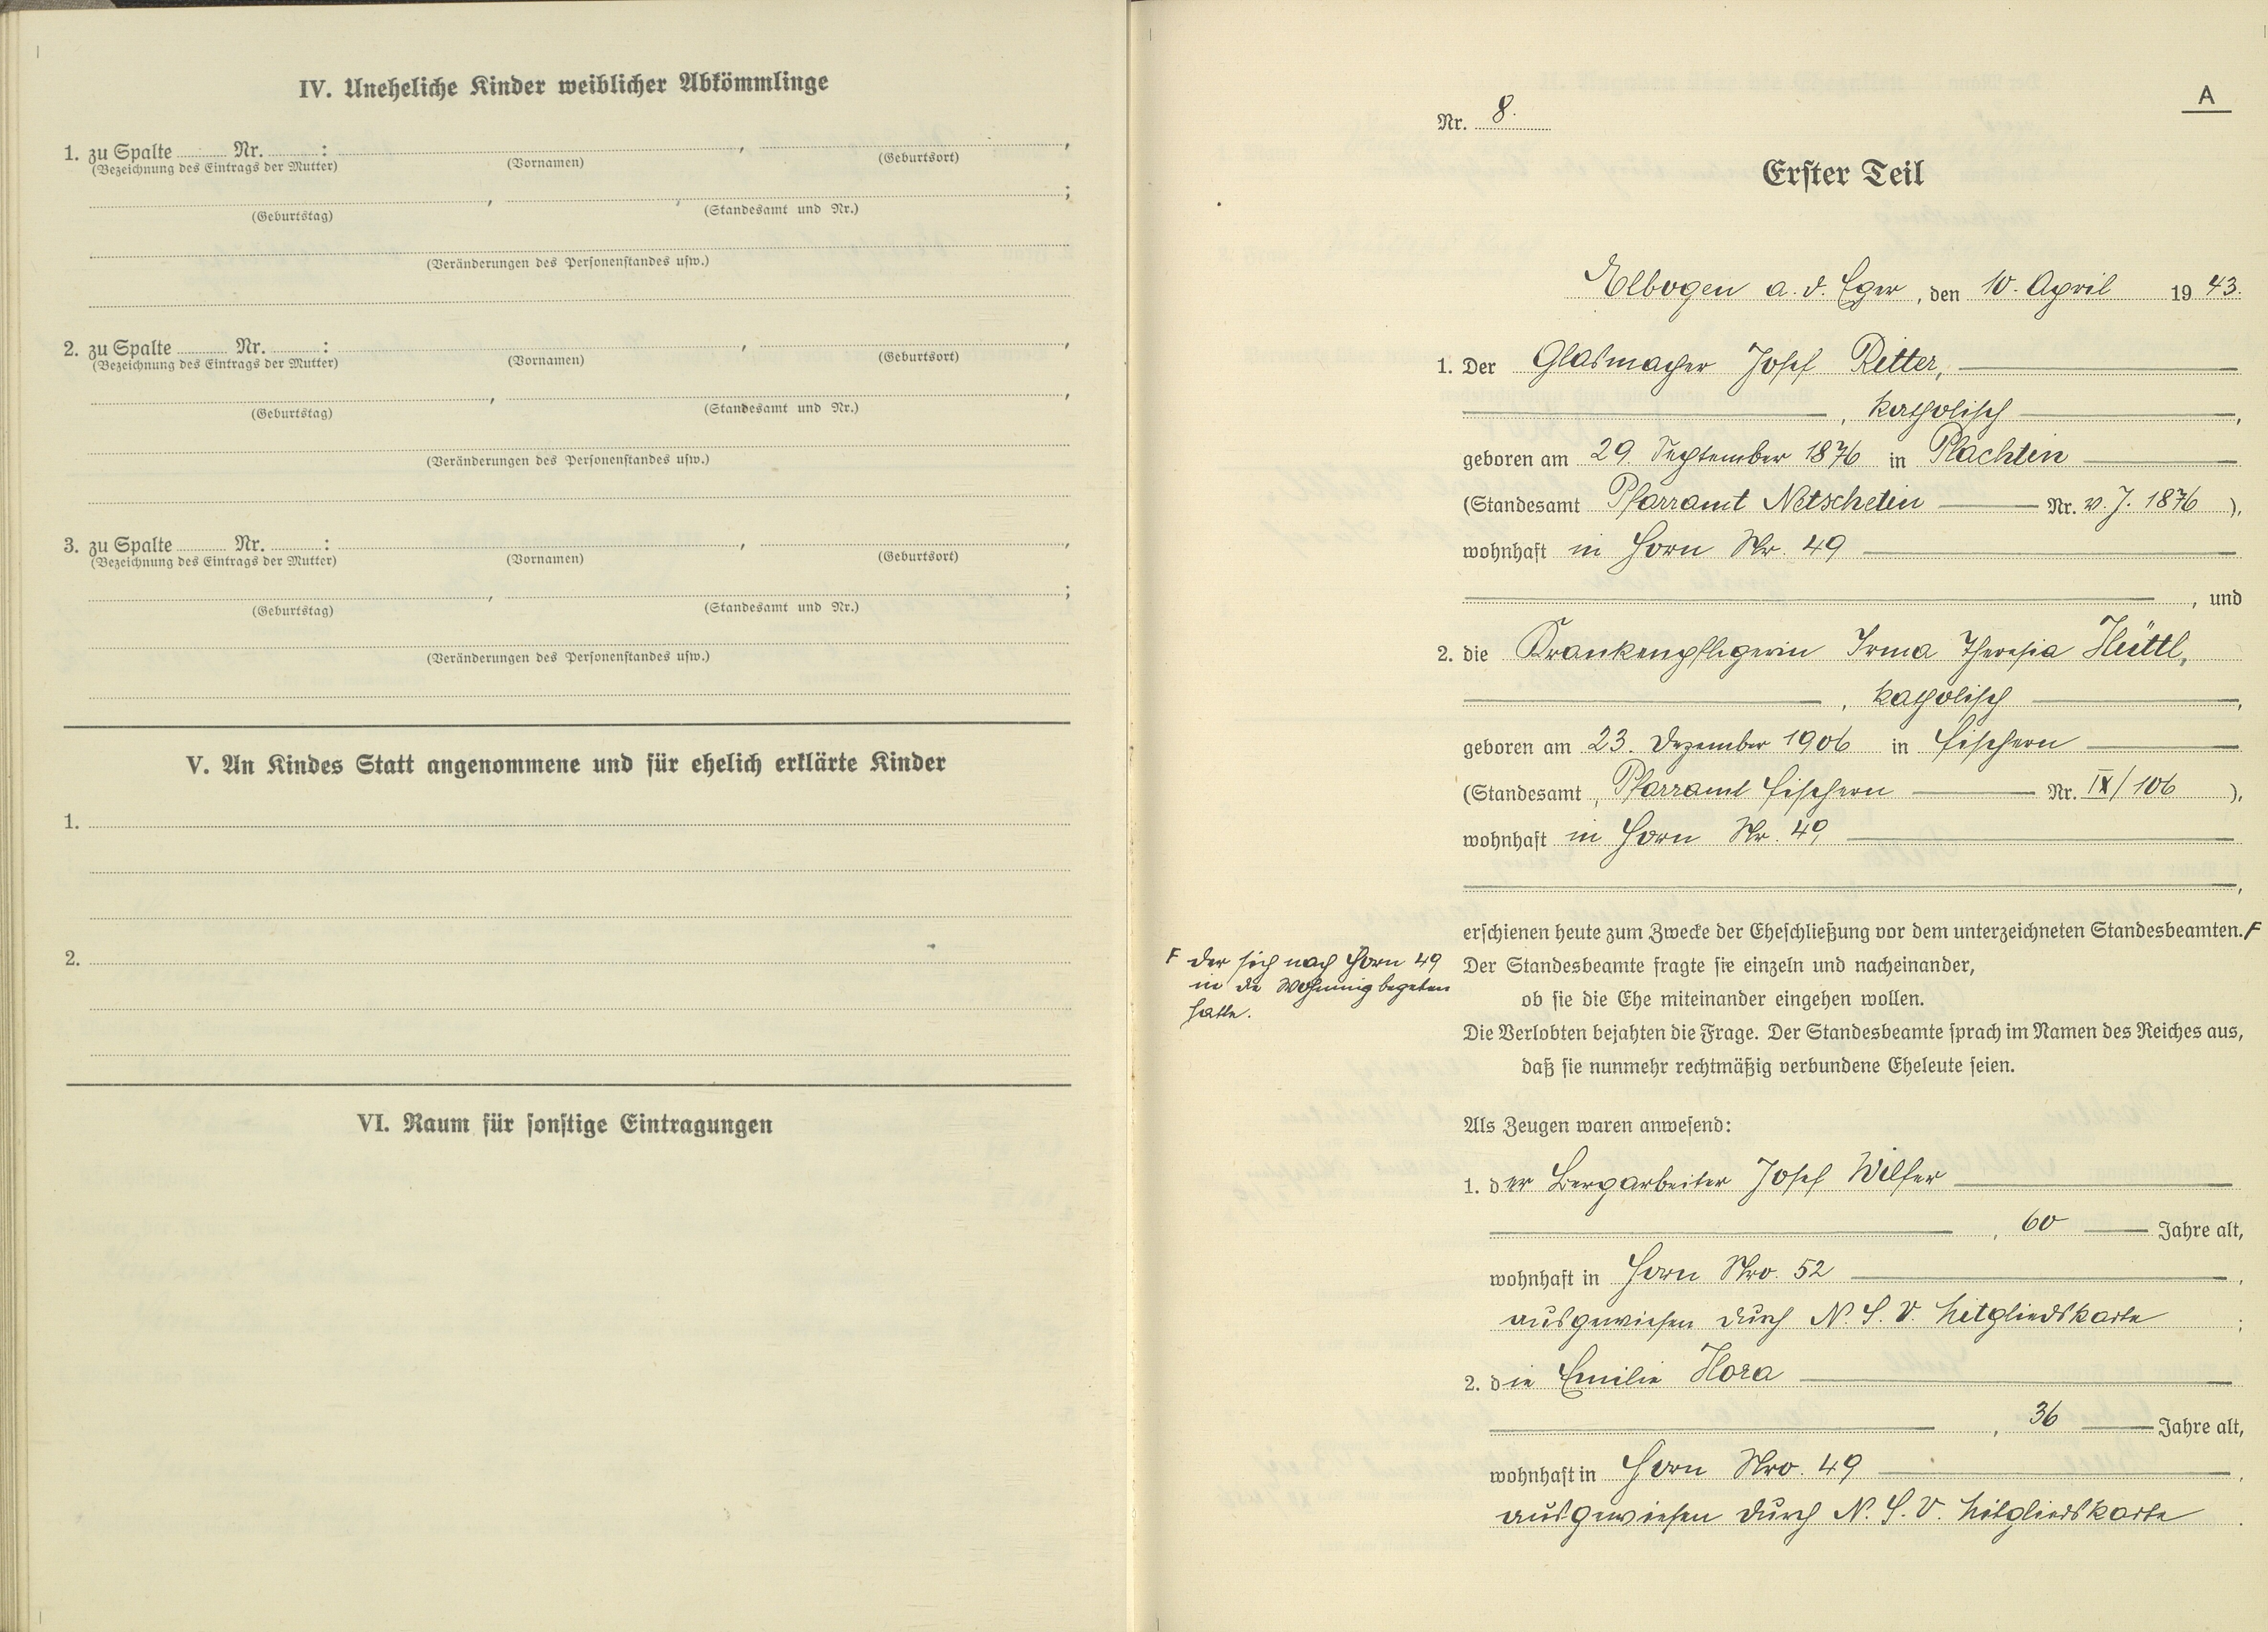 IV. Uneheliche Kinder weiblicher Abkömmlinge
1. zu Spalte ........ Nr. ........ : ........ , ........ ,
(Bezeichnung des Eintrags der Mutter) (Vornamen) (Geburtsort)
........ , ........ ;
(Geburtstag) (Standesamt und Nr.)
(Veränderungen des Personenstandes usw.)
2. zu Spalte ........ Nr. ........ : ........ , ........ ,
(Bezeichnung des Eintrags der Mutter) (Vornamen) (Geburtsort)
........ , ........ ,
(Geburtstag) (Standesamt und Nr.)
(Veränderungen des Personenstandes usw.)
3. zu Spalte ........ Nr. ........ : ........ , ........ ,
(Bezeichnung des Eintrags der Mutter) (Vornamen) (Geburtsort)
........ , ........ ;
(Geburtstag) (Standesamt und Nr.)
(Veränderungen des Personenstandes usw.)
V. An Kindes Statt angenommene und für ehelich erklärte Kinder
1.
2.
VI. Raum für sonstige Eintragungen
A
Nr. 8.
Erster Teil
Elbogen a. d. Eger, den 10. April 1943.
1. Der Glasmacher Josef Ritter,
, katholisch ,
geboren am 29. September 1876 in Plachten
(Standesamt Pfarramt Netschetin Nr. v. J. 1876 ),
wohnhaft in Horn Nr. 49
, und
2. die Krankenpflegerin Irma Theresia Hüttl,
, katholisch ,
geboren am 23. Dezember 1906 in Fischern
(Standesamt, Pfarramt Fischern Nr. IX/106 ),
wohnhaft in Horn Nr. 49,
,
erschienen heute zum Zwecke der Eheschließung vor dem unterzeichneten Standesbeamten. F
F der sich nach Horn 49
in die Wohnung begeben
hatte.
Der Standesbeamte fragte sie einzeln und nacheinander,
ob sie die Ehe miteinander eingehen wollen.
Die Verlobten bejahten die Frage. Der Standesbeamte sprach im Namen des Reiches aus,
daß sie nunmehr rechtmäßig verbundene Eheleute seien.
Als Zeugen waren anwesend:
1. der Bergarbeiter Josef Wilfer
, 60 Jahre alt,
wohnhaft in Horn Nro. 52 ,
ausgewiesen durch N. S. V. Mitgliedskarte ;
2. die Emilie Hora
, 36 Jahre alt,
wohnhaft in Horn Nro. 49 ,
ausgewiesen durch N. S. V. Mitgliedskarte .